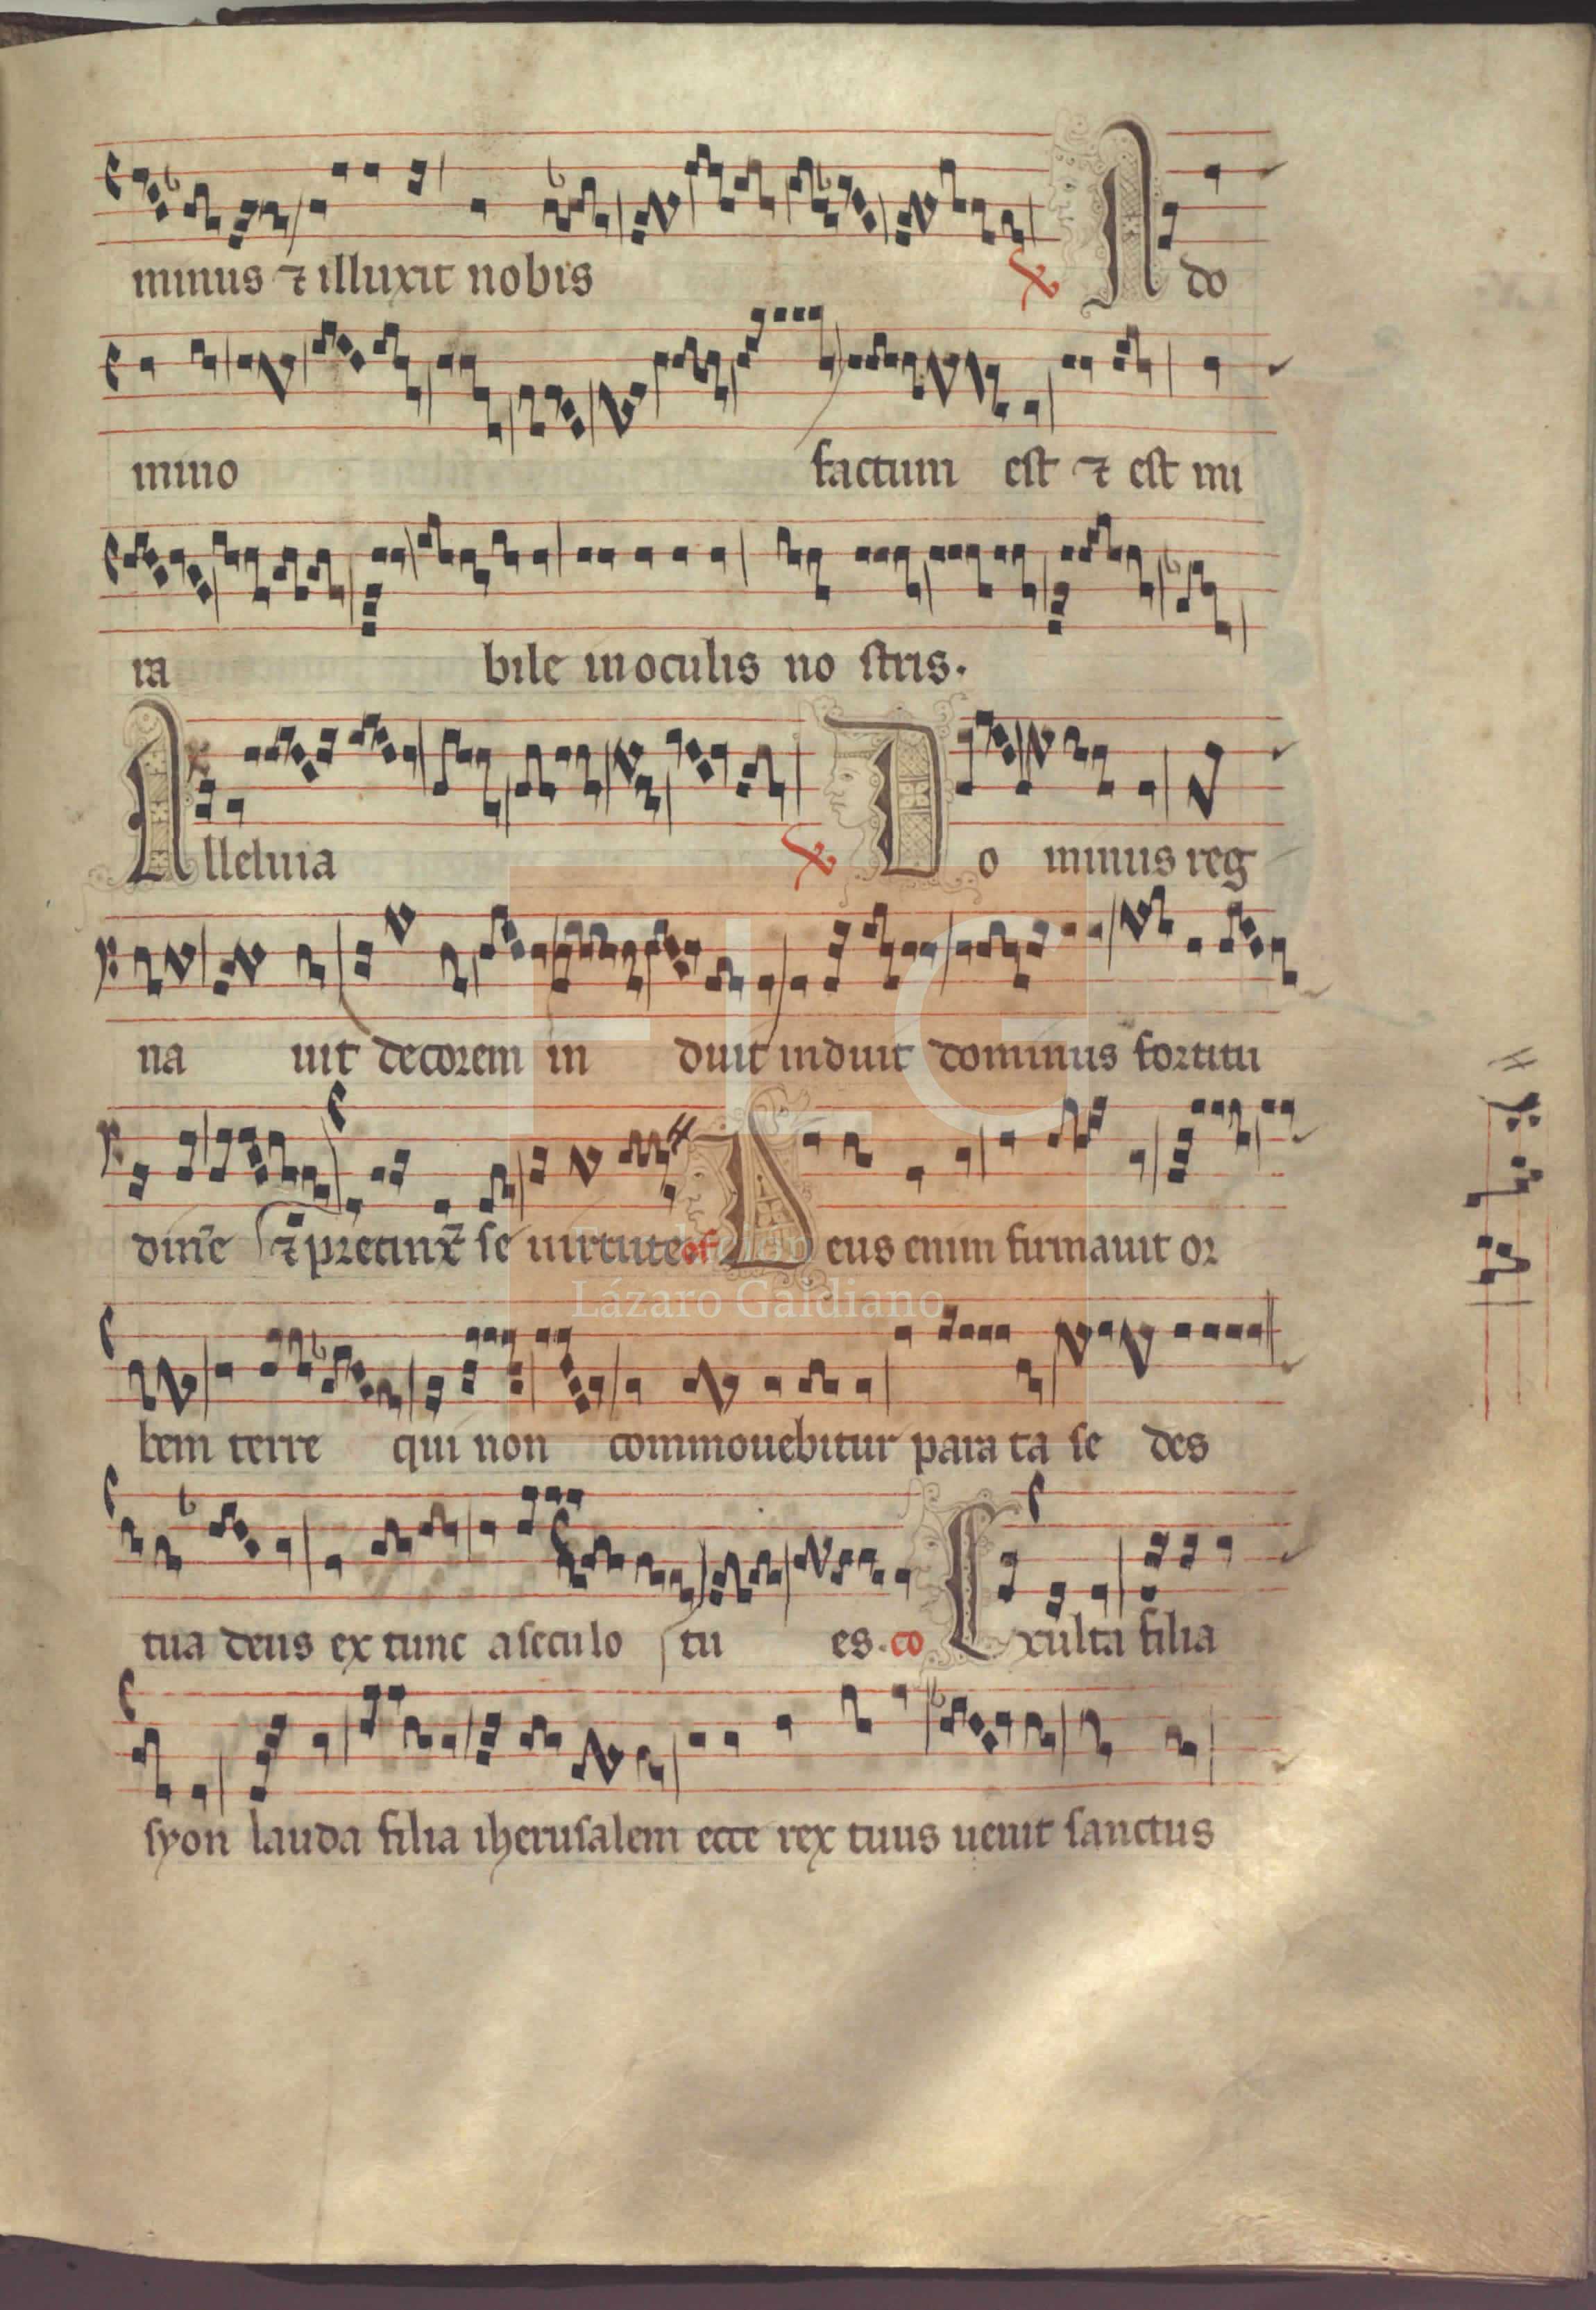 minus ⁊ illuxit nobis ℣ A do
mino factum est ⁊ est mi
ra bile in oculis no stris.
Alleluia ℣ Do minus reg
na uit decorem in duit induit dominus fortitu
dinē ⁊ precinx̄ se uirtute. of Deus enim firmauit or
bem terre qui non commouebitur para ta se des
tua deus ex tunc a seculo tu es. co Exulta filia
syon lauda filia iherusalem ecce rex tuus uenit sanctus
FLG
Lázaro Galdiano